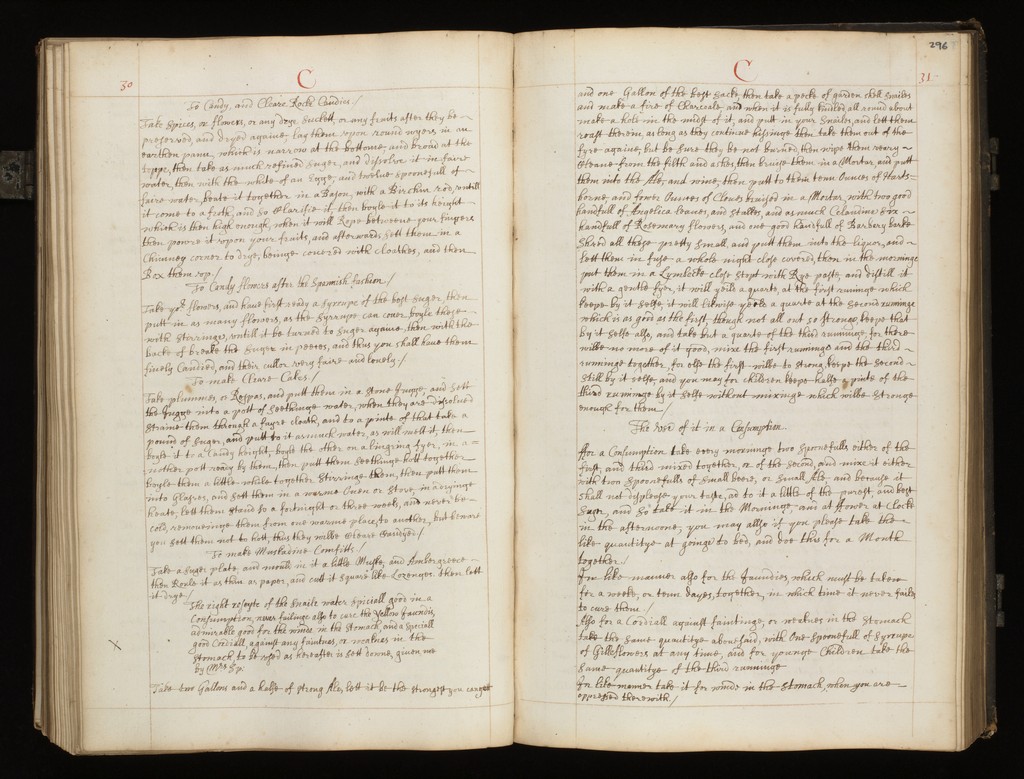 30
C
To Candy, and Cleare Rocke Candies./
Take spices, or flowers, or any drye Suckett, or any fruits after they be
preserved, and dryed againe, lay them upon round wyers in an
earthen panne, which is narrow at the bottome, and broad at the
toppe, then take as much refined Suger, and dissolve it in faire
water, then with the white of an Egge, and twelve spoonesfull of
faire water, beate it together in a Bason, with a Birchin rod, untill
it come to a froth, and so Clarifie it, then boyle it to its height
which is then high enough, when it will Rope betweene your fingers
then powre it upon your fruits, and afterwards, sett them in a
Chimney corner to drye, beinge covered with cloathes, and then
Box them up./
To Candy flowers after the Spannish fashion./
Take yor flowers, and have first ready a Syroupe of the best Suger, then
putt in as many flowers, as the Syrrupe can cover, boyle these
with stirringe, untill it be turned to Suger againe, then with the
backe of breake the Suger in peeces, and thus you shall have them
finely Candied, and their cullor very faire and lovely./
To make Cleare Cakes./
Take plummes, or Respas, and putt them in a stone Jugge, and sett
the Jugge into a pott of seethinge water, when they are dissolved
straine them through a fayre cloath, and to a pinte of that take a
pound of Suger, and putt to it as much water, as will melt it, then
boyle it to a Candy height, boyle the other on a lingring fyer, in a=
nother pott ready by them, then putt them seethinge hott together
boyle them a little while together, stirringe them, then putt them
into Glasses, and sett them in a warme Oven or Stove, in a dryinge
heate, lett them stand so a fortnight or three weeks, and never be
cold, removeinge them from one warme place, to another, but beware
you sett them not to hott, thus they wilbe Cleare Candyes./
To make Muskadine Comfitts./
Take a Suger plate, and mould in it a little Muske, and Ambergreece
then Roule it as thin as paper, and cutt it square like Lozenges, then lett
it drye./
The right reseyte of the Snaile water speciall good in a
Consumption, never failinge, allso to cure the Yellow Jaundis,
admirable good for the winde in the stomach, and a speciall
good Cordiall, against any faintnes, or weaknes in the
stomach, to be used as hereafter is sett downe, given me
by Mrs Sp:
X
Take two Gallon and a halfe of strong Ale, lett it be the strongest you can gett
296
31
C
and one Gallon of the best Sacke, then take a pecke of garden shell Snailes
and make a fire of Charcoale and when it is fully kindled all around about
make a hole in the midst of it, and putt in your Snailes, and lett them
roast therein, as long as they continue hissinge then take them out of the
fyre againe, but be sure they be not burned, then wipe them veary
Cleane from the filth and ashes, then bruise them in a Mortar, and putt
them into the Ale, and wine, then putt to them tenn Ounces of Harts-
horne, and fower Ounces of Cloves bruised in a Mortar, with two good
handfull of Angelica leaves, and stalkes, and as much Celandine six
handfull of Rosemary flowers, and one good handfull of Barbery barke
Shred all these pretty small, and putt them into the liquor, and
lett them infuse a whole night close covered, then in the morninge
put them in a Lymbecke close stopt with Rye paste, and distill it
with a gentle fyer, it will yeild a quarte, at the first runinge which
keepe by it selfe, it will likwise yeeld a quarte at the second runinge
which is as good as the first, though not all out so stronge, keepe that
by it selfe also, and take but a quarte of the third runninge, for there
wilbe no more of it good, mixe the first runninge and the third
runninge together, for else the first wilbe to strong, keepe the second
still by it selfe, and you may for children keepe halfe a pinte of the
third runninge by it selfe without mixinge which wilbe stronge
enough for them./
The use of it in a Consumption.
ffor a Consumption take every morninge two spoonefulls either of the
first, and third mixed together, or of the second, and mixe it either
with two spoonefulls of small beere, or small Ale, and because it
shall not displease your taste, ad to it a little of the purest, and best
Suger, and so take it in the Morninge, and at fower at Clock
in the afternoone, you may allso if you please take the
like quantitye at goinge to bed, and doe this for a Month
together./
In like manner also for the Jaundies, which must be taken
for a weeke, or tenn dayes, together, in which time it never fails
to cure them./
Also for a Cordiall against faintinge, or weaknes in the stomach
take the same quantitye abovesaid, with One spoonefull of Syroupe
of Gilleflowers at any time, and for younge Children take the
same quantitye of the third runninge
In like manner take it for winde in the stomach, when you are
oppressed therewith./